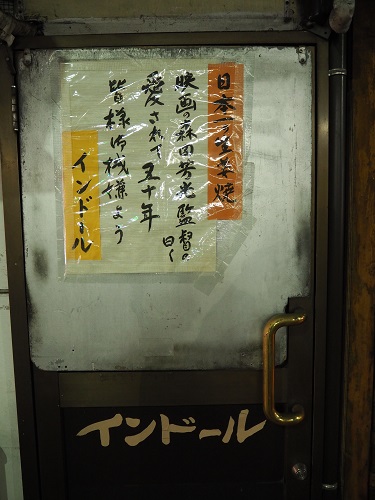 日本一の生姜焼
映画の森田芳光監督の曰く
愛されて五十年
皆様御機嫌よう
インドール
インドール